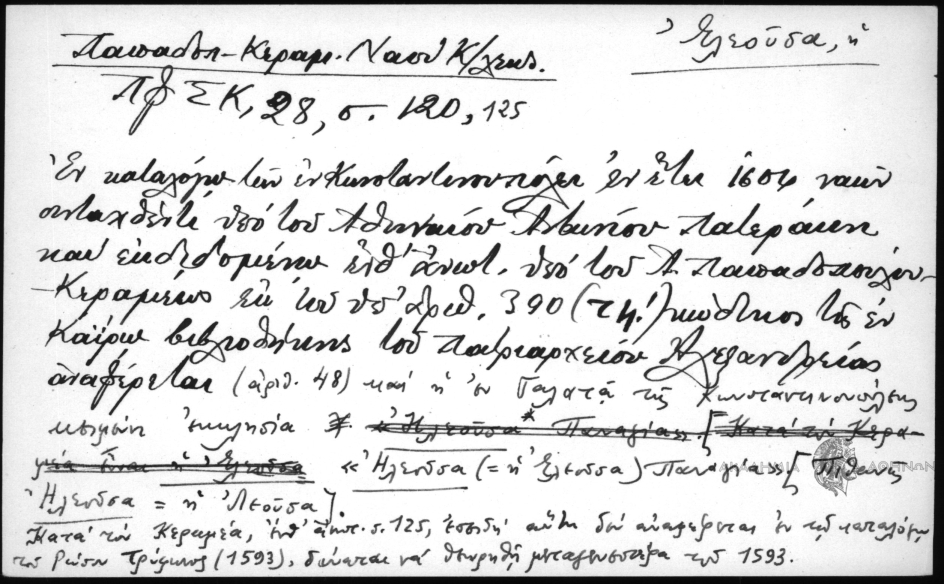 Ἐλεοῦσα, ἡ
Παπαδοπ.-Κεραμ. Ναοὶ Κ/λεως.
ΛΦΣΚ, 28, σ. 120, 125
Ἐν καταλόγῳ τῶν ἐν Κωνσταντινουπόλει ἐν ἔτει 1604 ναῶν
συνταχθέντι ὑπὸ τοῦ Ἀθηναίου Ἀντωνίου Πατεράκη
καὶ ἐκδεδομένῳ ἔνθ' ἀνωτ. ὑπὸ τοῦ Α. Παπαδοπούλου-
-Κεραμέως ἐκ τοῦ ὑπ' ἀριθ. 390 (τη'.) κώδικος τῆς ἐν
Καΐρῳ βιβλιοθήκης τοῦ Πατριαρχείου Ἀλεξανδρείας
ἀναφέρεται (ἀριθ. 48) καὶ ἡ ἐν Γαλατᾷ τῆς Κωνσταντινουπόλεως
κειμένη ἐκκλησία «Ἠλεοῦσα Παναγία». [Κατὰ τὸν Κερα-
μέα εἶναι ἡ Ἐλεοῦσα «Ἠλεοῦσα (= ἡ Ἐλεοῦσα) Παναγία» [Πιθανῶς
Ἠλεοῦσα = ἡ Ἐλεοῦσα].
Κατὰ τὸν Κεραμέα, ἔνθ' ἀνωτ. σ. 125, ἐπειδὴ αὕτη δὲν ἀναφέρεται ἐν τῷ καταλόγῳ
τοῦ Ρώσου Τρύφωνος (1593), δύναται νὰ θεωρηθῇ μεταγενεστέρα τοῦ 1593.
ΑΚΑΔΗΜΙΑ ΑΘΗΝΩΝ